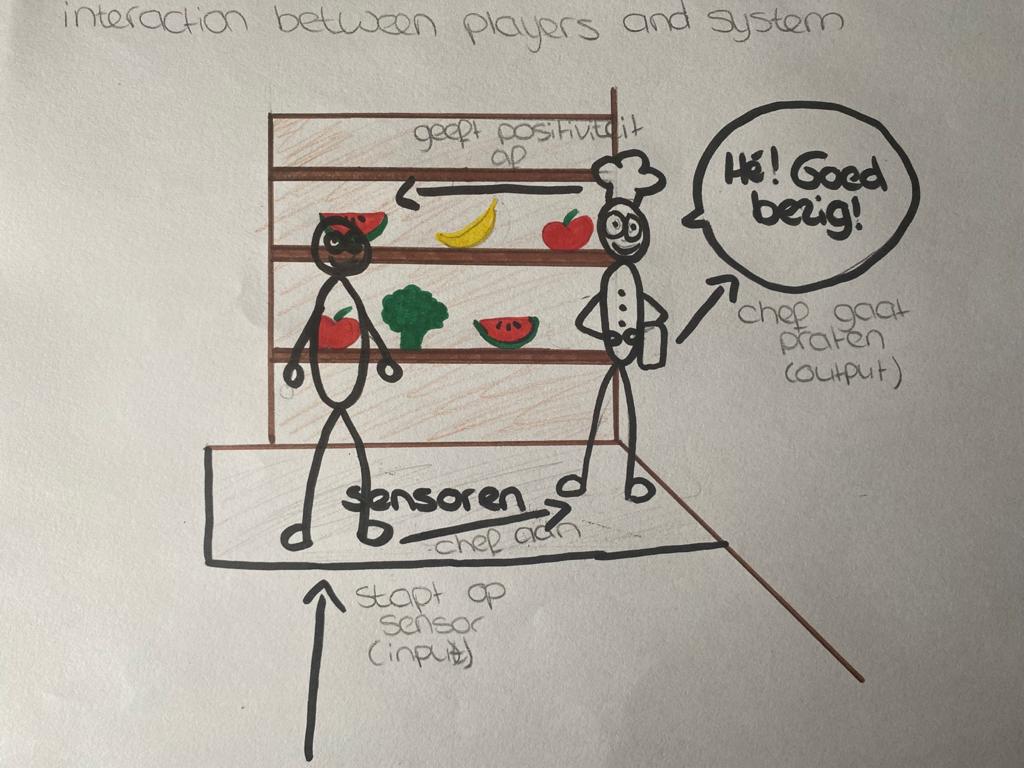 interaction between players and system
geeft positiviteit
op
Hé! Goed
bezig!
chef gaat
praten
(output)
sensoren
chef aan
stapt op
sensor
(input)